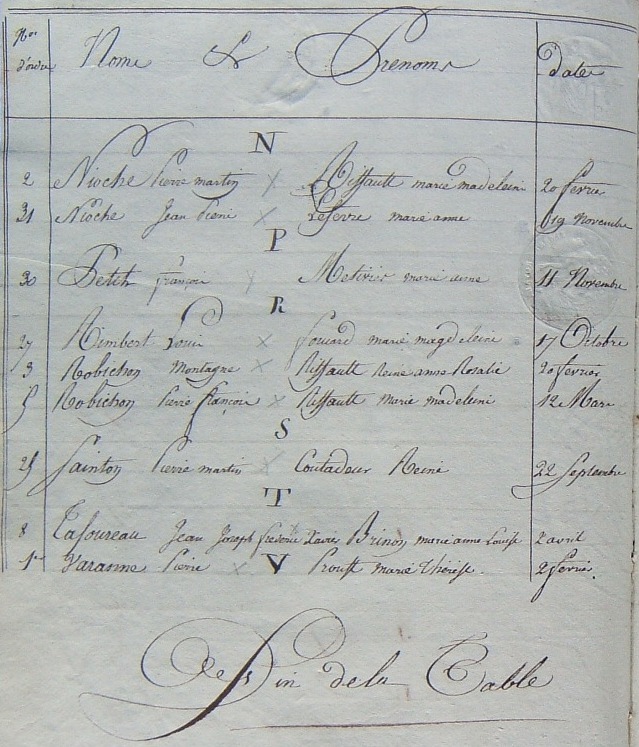 Nos d'ordre Noms & Prenoms date
N
2 Nioche Pierre martin × Riffault marie madeleine 20 fevrier
31 Nioche Jean Pierre × Lefevre marie anne 19 Novembre
P
30 Petit françois × Metivier marie anne 11 Novembre
R
27 Rimbert Louis × fouard marie magdeleine 17 Octobre
3 Robichon Montagne × Riffault Reine anne Rosalie 20 fevrier
5 Robichon Pierre françois × Riffault marie madeleine 12 Mars
S
25 Sainton Pierre martin × Coutadeur Reine 22 Septembre
T
8 Tafoureau Jean Joseph frederic Xavier Brinon marie anne Louise 2 avril
V
1er Varanne Pierre × Proust marie thérèse. 2 fevrier.
fin de la Table